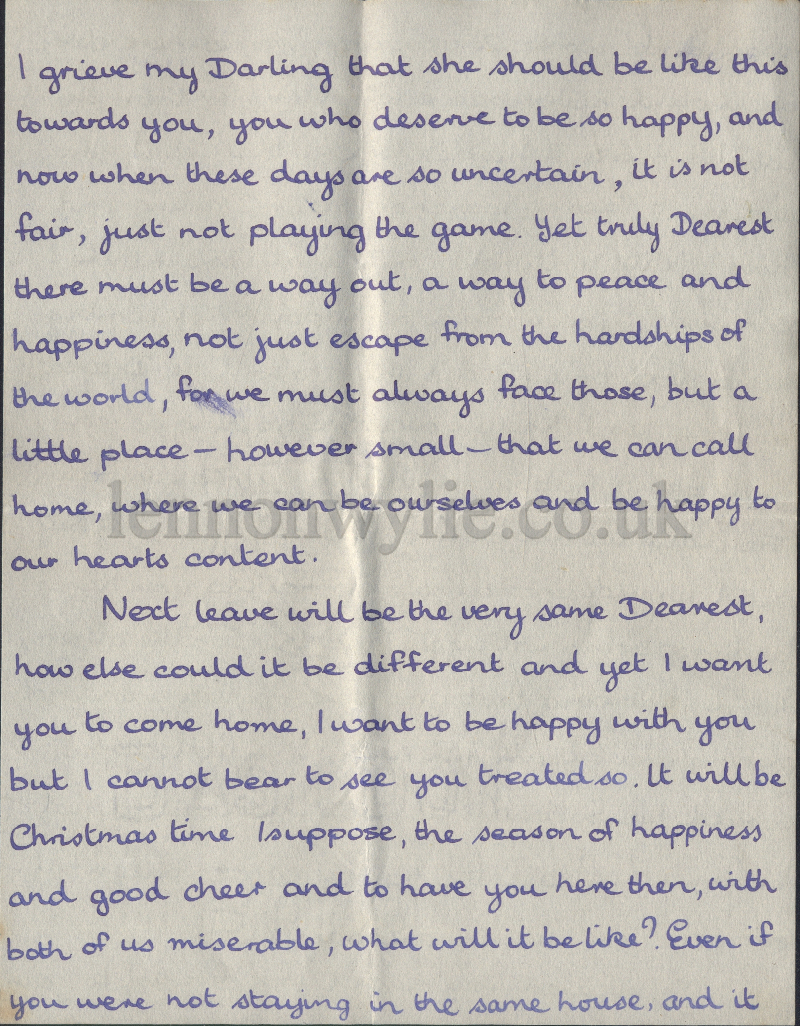 I grieve my Darling that she should be like this
towards you, you who deserve to be so happy, and
now when these days are so uncertain, it is not
fair, just not playing the game. Yet truly Dearest
there must be a way out, a way to peace and
happiness, not just escape from the hardships of
the world, for we must always face those, but a
little place – however small – that we can call
home, where we can be ourselves and be happy to
lennonwylie.co.uk
our hearts content.
Next leave will be the very same Dearest,
how else could it be different and yet I want
you to come home, I want to be happy with you
but I cannot bear to see you treated so. It will be
Christmas time I suppose, the season of happiness
and good cheer and to have you here then, with
both of us miserable, what will it be like? Even if
you were not staying in the same house, and it